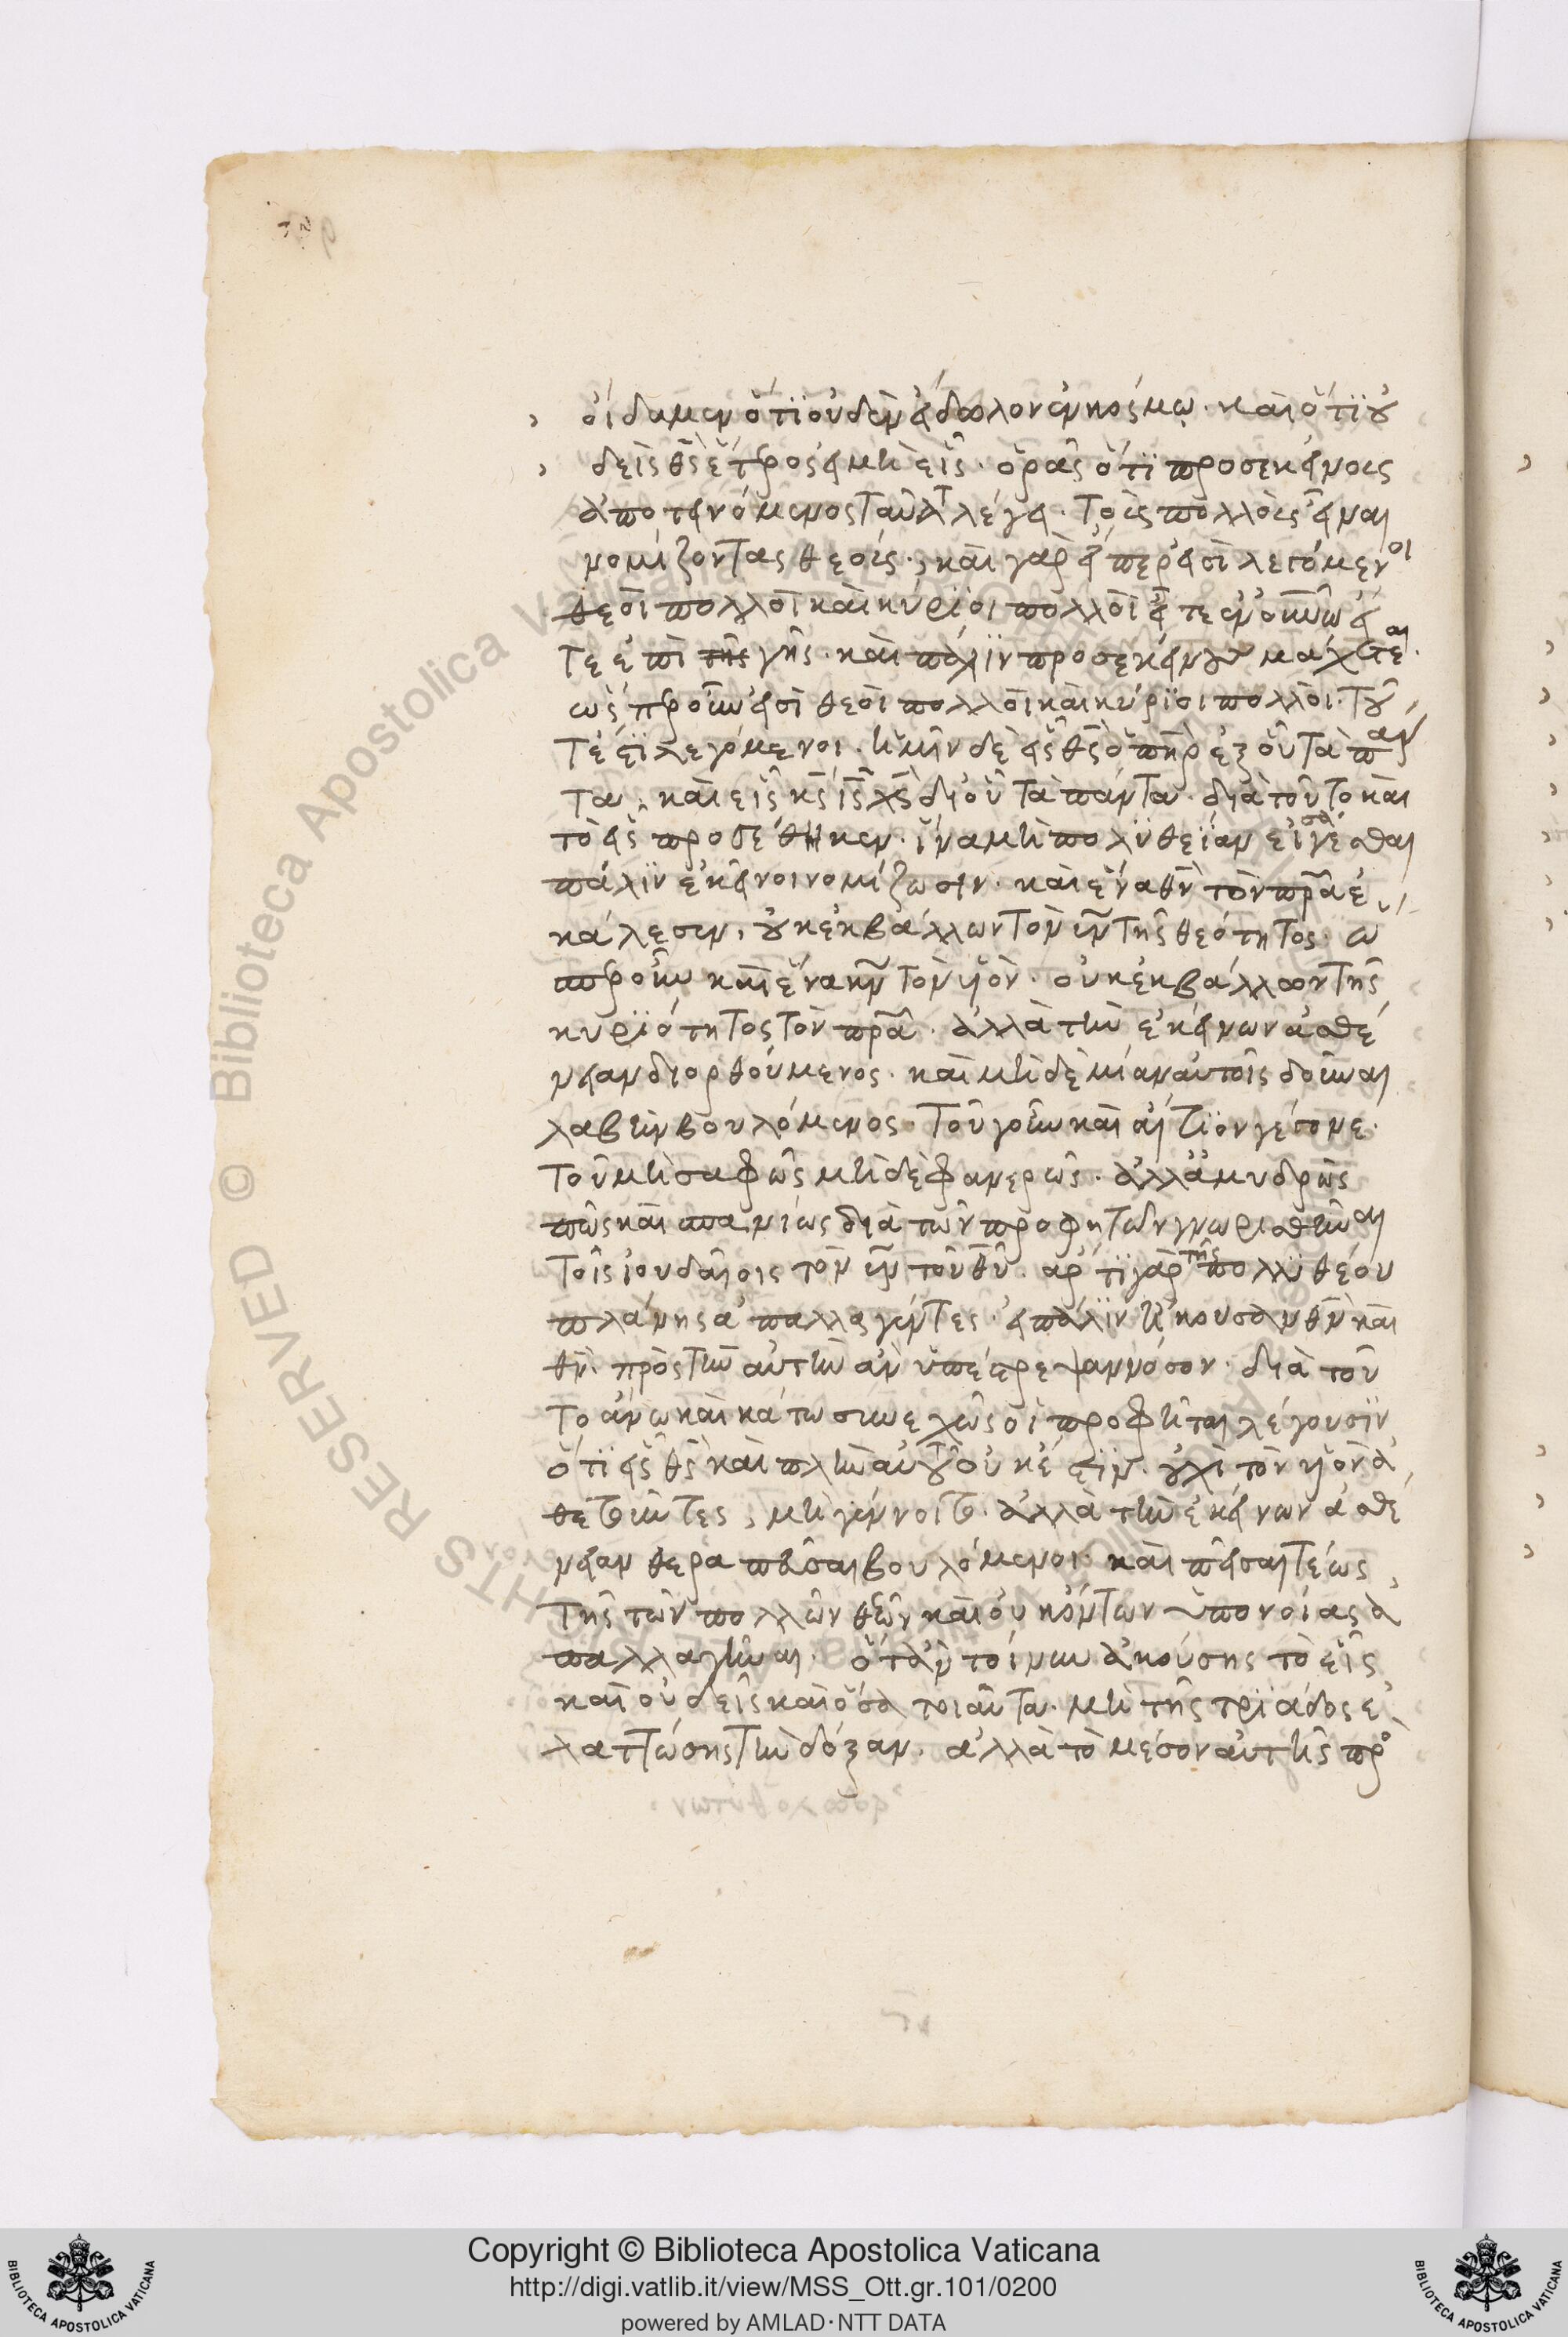 οἴδαμεν ὅτϊ οὐδὲν εἴδωλον ἐν κόσμῳ· καὶ ὅτϊ οὐ
δεὶς θς ἕτερος εἰ μὴ εἷς· ὁρᾶς ὅτϊ πρὸς ἐκείνοις
ἀποτεινόμενος ταῦτα λέγει· τοῖς πολλοῖς εἶναι
νομίζοντας θεοίς· καὶ γὰρ εἴπερ εἰσὶ λεγόμενοι
θεοὶ πολλοὶ καὶ κυρϊοι πολλοὶ εἴτε ἐν οὐνῶ εἴ
τε ἐπὶ τῆς γῆς· καὶ πάλϊν πρὸς ἐκείνους μάχεται·
ὡς προεῖπον εἰσὶ θεοὶ πολλοὶ καὶ κύρϊοι πολλοὶ· του
τέστϊ λεγόμενοι· ἡμῖν δὲ εἷς θς ὁ πηρ ἐξ οὗ τὰ πάν
τα, καὶ εἷς κς ις χς δι οὗ τὰ πάντα· διὰ τοῦτο καὶ
τὸ εἷς προσέθηκεν· ἵνα μὴ πολϋθεΐαν εἰσάγεσθαι
πάλϊν ἐκεῖνοι νομίζωσιν· καὶ ἕνα θν τὸν πρα ἐ
κάλεσεν, οὐκ ἐκβάλλων τὸν υν τῆς θεότητος· ὥ
σπερ οὖν καὶ ἕνα κν τὸν υἱὸν· οὐκ ἐκβάλλων τῆς
κυρϊότητος τὸν πρα· ἀλλὰ τὴν ἐκείνων ἀσθέ
νειαν διορθούμενος· καὶ μὴ δεμίαν αὐτοῖς δοῦναι
λαβὴν βουλόμενος· τοῦ γοῦν καὶ αἴτϊον γέγονε·
τοῦ μὴ σαφῶς μὴ δὲ φανερῶς· ἀλλ ἀμυδρῶς
πῶς καὶ σπανίως διὰ τῶν προφητῶν γνωρισθῆναι
τοῖς ἰουδαίοις τὸν υν τοῦ θυ· ἄρτϊ γὰρ τῆς πολλϋθέου
πλάνης ἀπαλλαγέντες· εἰ πάλϊν ἤκουσαν θν καὶ
θν· πρὸς τὴν αὐτὴν ἂν ὑπέστρεψαν νόσον· διὰ τοῦ
το ἄνω καὶ κάτω συνεχῶς οἱ προφῆται λέγουσϊν
ὅτϊ εἷς θς καὶ πλὴν αὐτοῦ οὐκ έστϊν· οὐχὶ τὸν υἱὸν ἀ
θετοῦντες, μὴ γένοιτο· ἀλλὰ τὴν ἐκείνων ἀσθέ
νειαν θεραπεῦσαι βουλόμενοι· καὶ πεῖσαι τέως
τῆς τῶν πολλῶν θεῶν καὶ οὐκ ὄντων ὑπονοίας ἀ
παλλαγῆναι· ὅταν τοίνυν ἀκούσης τὸ εἷς
καὶ οὐδεὶς καὶ ὅσα τοιαῦτα· μὴ τῆς τρϊάδος ἐ
λαττώσης τὴν δόξαν· ἀλλὰ τὸ μέσον αὐτῆς πρὸ
Copyright © Biblioteca Apostolica Vaticana
http://digi.vatlib.it/view/MSS_Ott.gr.101/0200
powered by AMLAD · NTT DATA